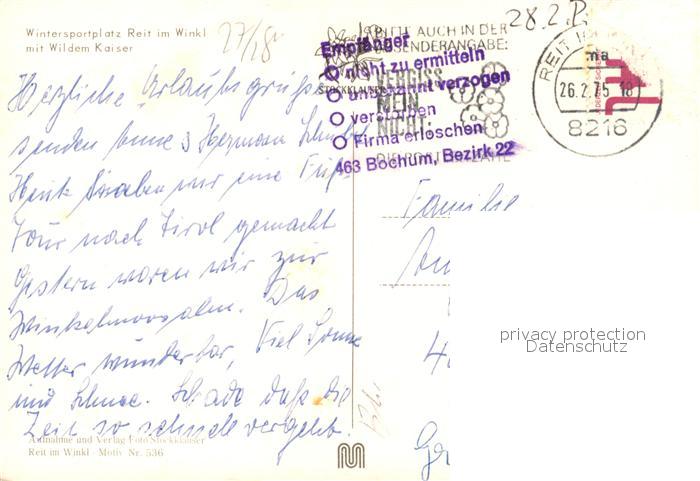 Wintersportplatz Reit im Winkl
mit Wildem Kaiser
27/28
28.2.
BITTE AUCH IN DER
ABSENDERANGABE:
VERGISS
MEIN
NICHT:
Empfänger
nicht zu ermitteln
unbekannt verzogen
verstorben
Firma erloschen
463 Bochum, Bezirk 22
REIT I
ma
26.2.75-18
8216
Herzliche Urlaubsgrüße
senden Anne & Hermann
Heute haben wir eine
Tour nach Tirol gemacht
Gestern waren wir zur
Winkelmoosalm. Das
Wetter wunderbar, Viel Sonne
und Schnee. Schade daß die
Zeit so schnell vergeht.
Familie
privacy protection
Datenschutz
Aufnahme und Verlag Foto Stockklauser
Reit im Winkl · Motiv Nr. 536